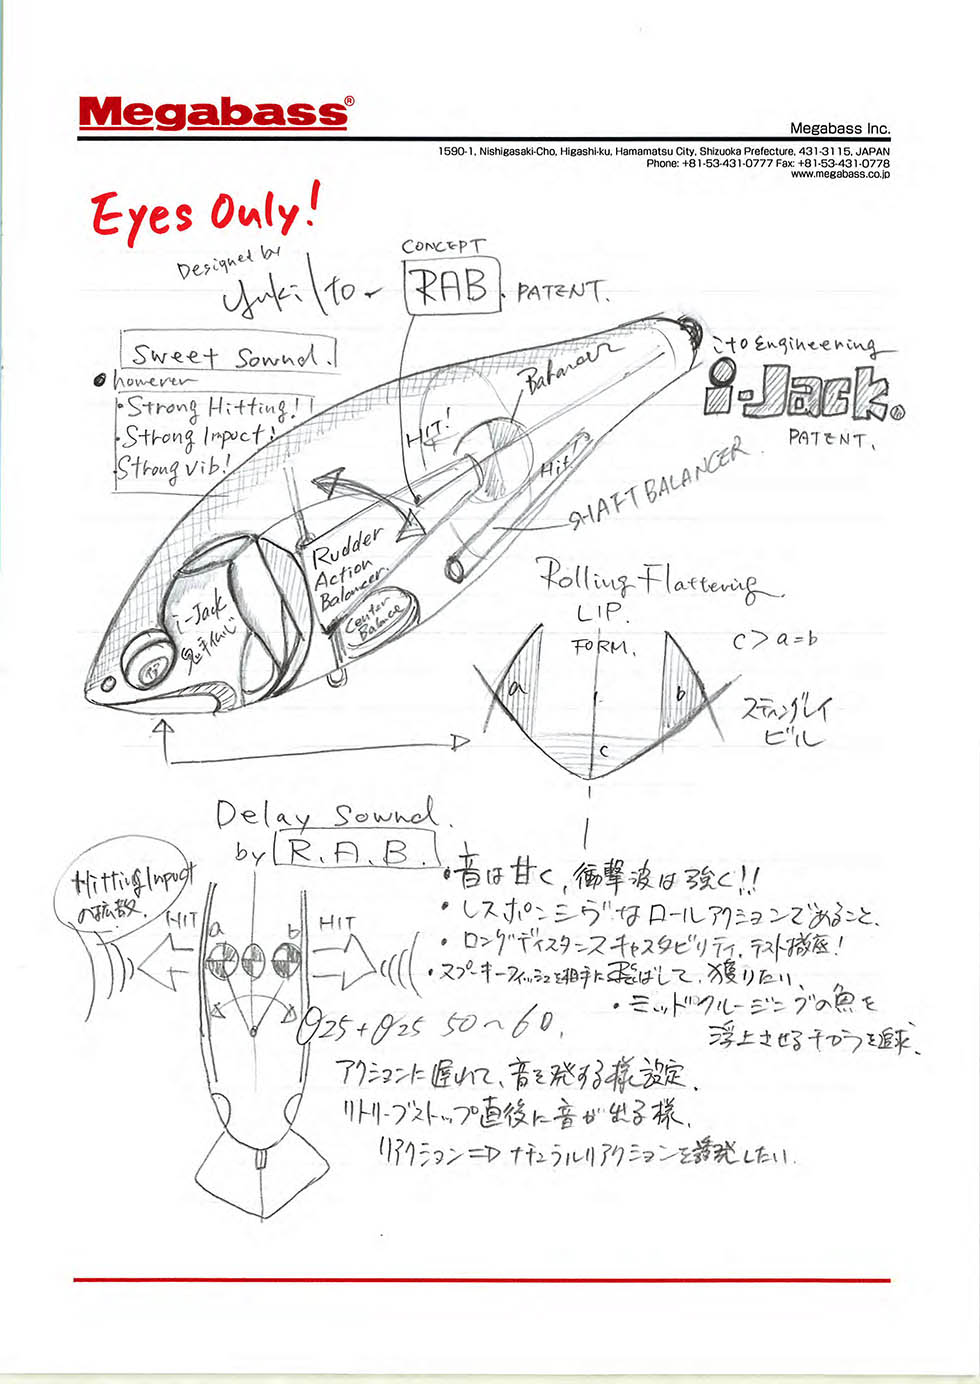 Megabass®
Megabass Inc.
1590-1, Nishigasaki-Cho, Higashi-ku, Hamamatsu City, Shizuoka Prefecture, 431-3115, JAPAN
Phone: +81-53-431-0777 Fax: +81-53-431-0778
www.megabass.co.jp
Eyes Only!
Designed by
Yuki Ito
CONCEPT
RAB. PATENT.
Sweet Sownd.
however
・Strong Hitting!!
・Strong Impact!
Strong Vib!
Balancer
ito Engineering
i-Jack®
PATENT.
HIT!
HIT
SHAFT BALANCER.
Rudder
Action
Balancer.
Center
Balance
i-Jack
Rolling Flattering
LIP.
FORM.
C > a = b
a
b
c
スティングレイ
ビル
Delay Sownd.
by R.A.B.
Hitting Impact
の拡散.
HIT
HIT
a
b
・音は甘く、衝撃波は強く!!
・レスポンシヴなロールアクションであること、
・ロングディスタンスキャスタビリティ、テスト徹底!
・スプーキーフィッシュを相手に飛ばして、獲りたい、
・ミッドクルージングの魚を
浮上させるチカラを追求、
θ25+θ25 50~60.
アクションに遅れて、音を発する様設定、
リトリーブストップ直後に音が出る様、
リアクション⇒ナチュラルリアクションを誘発したい.